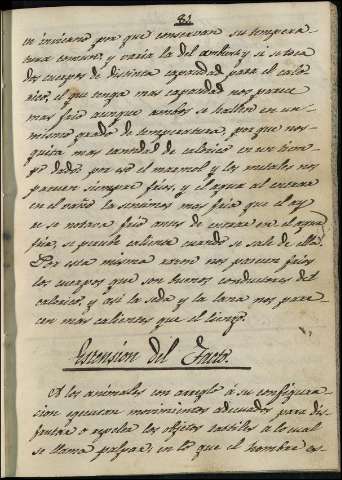 81
en invierno por que conservan su tempera-
tura comun, y varia la del ambte, y si se toca
dos cuerpos de distinta capacidad para el calo-
rico, el que tenga mas capacidad nos parece
mas frio aunque ambos se hallen en un
mismo grado de temperatura, por que nos
quita mas cantidad de calorico en un tiem-
po dado; por eso el marmol y los metales nos
parecen siempre frios, y el agua al entrar
en el baño la sentimos mas fria que el ay-
re se notara frio antes de entrar en el agua
fria, se percibe calien­te cuando se sale de ella.
Por esta misma razon nos parecen frios
los cuerpos que son buenos conductores del
calorico, y asi la seda y la lana nos pare-
cen mas calientes que el lienzo.
Estension del Tacto.
A los animales con arreglo á su configura-
cion egecutan movimientos adecuados para dis-
frutar o repeler los objetos tactiles a lo cual
se llama palpar, en lo que el hombre es-